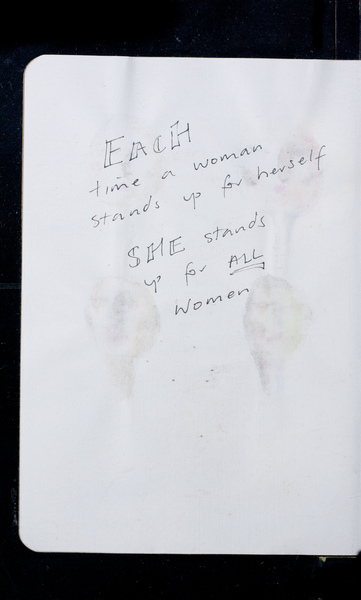 EACH
time a woman
stands up for herself
SHE stands
up for ALL
Women